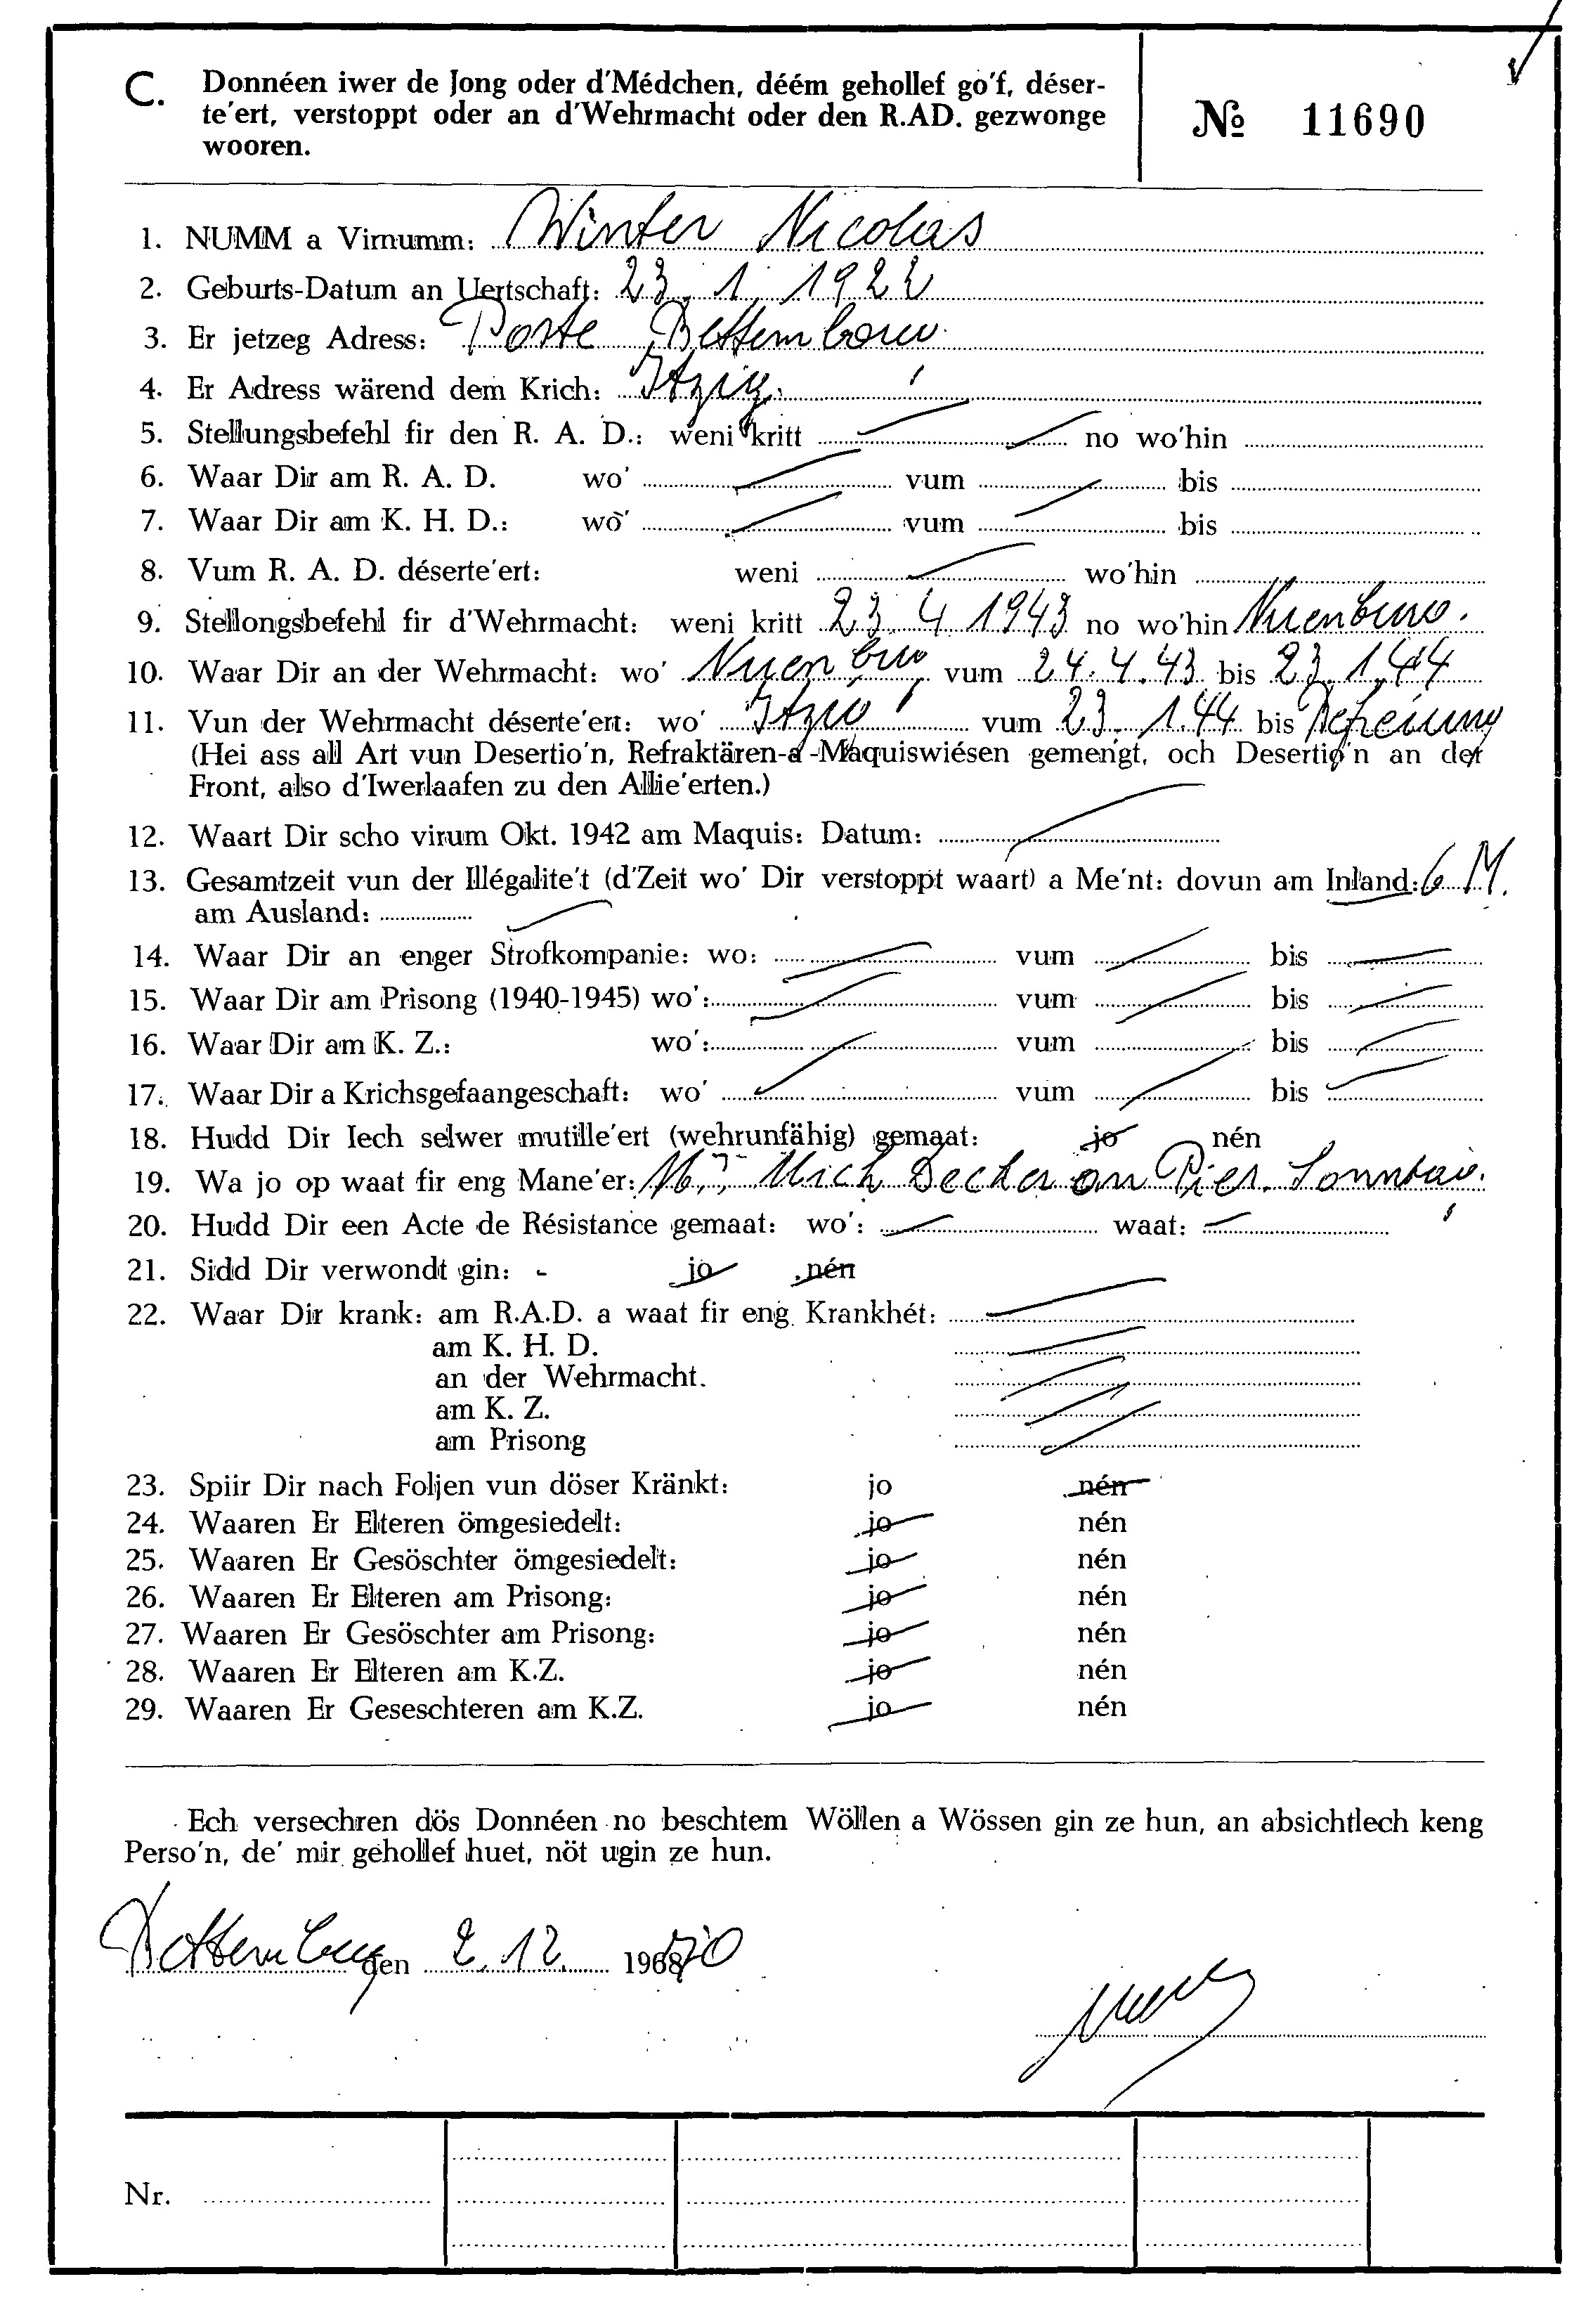 C. Donnéen iwer de Jong oder d'Médchen, déém gehollef go'f, déser-
te'ert, verstoppt oder an d'Wehrmacht oder den R.AD. gezwonge
wooren.
№ 11690
1. NUMM a Virnumm: Winter Nicolas
2. Geburts-Datum an Uertschaft: 23. 1. 1922
3. Er jetzeg Adress: Poste Bettembourg
4. Er Adress wärend dem Krich: Itzig
5. Stellungsbefehl fir den R. A. D.: weni kritt no wo'hin
6. Waar Dir am R. A. D. wo' vum bis
7. Waar Dir am K. H. D.: wo' vum bis
8. Vum R. A. D. déserte'ert: weni wo'hin
9. Stellongsbefehl fir d'Wehrmacht: weni kritt 23. 4 1943 no wo'hin
10. Waar Dir an der Wehrmacht: wo' vum 24.4.43 bis 23.1.44
11. Vun der Wehrmacht déserte'ert: wo' Itzig vum 23.1.44 bis Befreiung
(Hei ass all Art vun Desertio'n, Refraktären-a -Maquiswiésen gemengt, och Desertio'n an der
Front, also d'Iwerlaafen zu den Allie'erten.)
12. Waart Dir scho virum Okt. 1942 am Maquis: Datum:
13. Gesamtzeit vun der Illégalite't (d'Zeit wo' Dir verstoppt waart) a Me'nt: dovun am Inland: 6 M.
am Ausland:
14. Waar Dir an enger Strofkompanie: wo: vum bis
15. Waar Dir am Prisong (1940-1945) wo': vum bis
16. Waar Dir am K. Z.: wo': vum bis
17. Waar Dir a Krichsgefaangeschaft: wo' vum bis
18. Hudd Dir Iech selwer mutille'ert (wehrunfähig) gemaat: jo nén
19. Wa jo op waat fir eng Mane'er: Mich Decker an Pier. Sonntag.
20. Hudd Dir een Acte de Résistance gemaat: wo': waat:
21. Sidd Dir verwondt gin: - jo nén
22. Waar Dir krank: am R.A.D. a waat fir eng Krankhét:
am K. H. D.
an der Wehrmacht.
am K. Z.
am Prisong
23. Spiir Dir nach Foljen vun döser Kränkt: jo nén
24. Waaren Er Elteren ömgesiedelt: jo nén
25. Waaren Er Gesöschter ömgesiedelt: jo nén
26. Waaren Er Elteren am Prisong: jo nén
27. Waaren Er Gesöschter am Prisong: jo nén
28. Waaren Er Elteren am K.Z. jo nén
29. Waaren Er Geseschteren am K.Z. jo nén
Ech versechren dös Donnéen no beschtem Wöllen a Wössen gin ze hun, an absichtlech keng
Perso'n, de' mir gehollef huet, nöt ugin ze hun.
Bettembourg den 2.12. 196870
Nr.